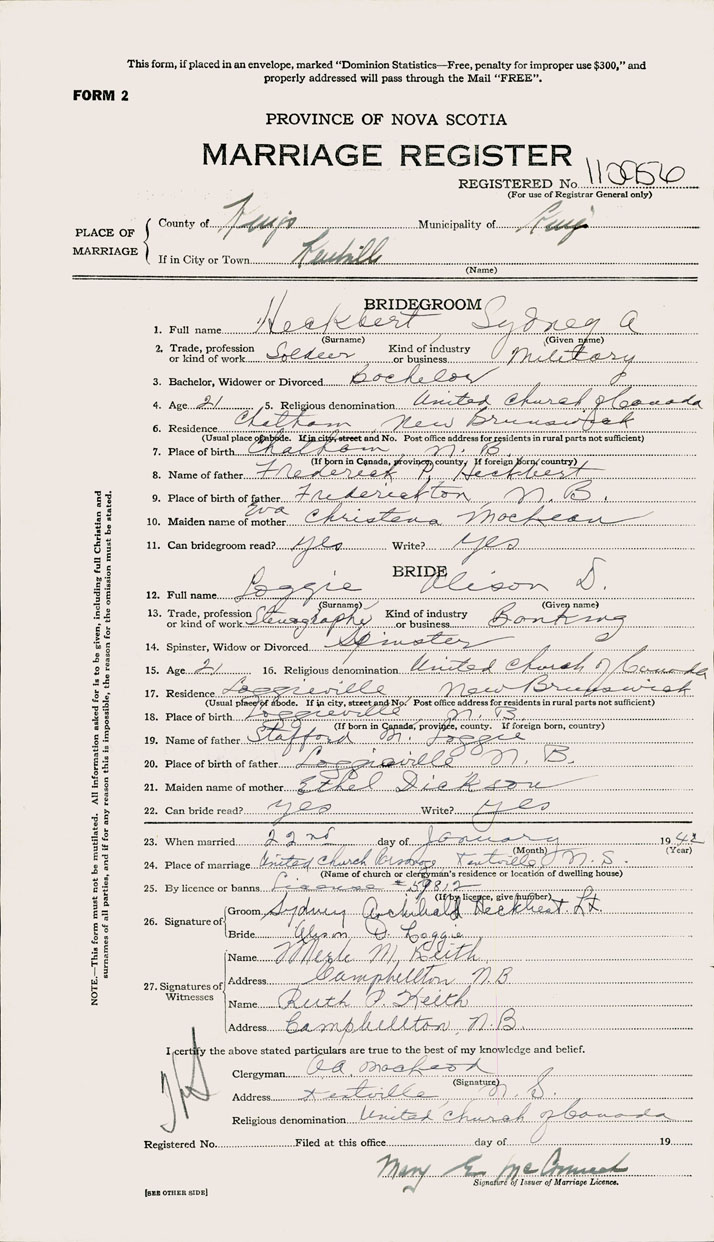 This form, if placed in an envelope, marked “Dominion Statistics—Free, penalty for improper use $300,” and
properly addressed will pass through the Mail “FREE”.
FORM 2
PROVINCE OF NOVA SCOTIA
MARRIAGE REGISTER
REGISTERED No.
(For use of Registrar General only)
PLACE OF MARRIAGE
County of Kings Municipality of Kings
If in City or Town Kentville
(Name)
BRIDEGROOM
1. Full name Heckbert Sydney A
(Surname) (Given name)
2. Trade, profession or kind of work Soldier Kind of industry or business Military
3. Bachelor, Widower or Divorced Bachelor
4. Age 21 5. Religious denomination United Church of Canada
6. Residence Chatham, New Brunswick
(Usual place of abode. If in city, street and No. Post office address for residents in rural parts not sufficient)
7. Place of birth Chatham N. B.
(If born in Canada, province, county, If foreign born, country)
8. Name of father Frederick P. Heckbert
9. Place of birth of father Fredericton N. B.
10. Maiden name of mother Eva Christena MacLean
11. Can bridegroom read? yes Write? yes
BRIDE
12. Full name Loggie Alison D.
(Surname) (Given name)
13. Trade, profession or kind of work Stenographer Kind of industry or business Banking
14. Spinster, Widow or Divorced Spinster
15. Age 21 16. Religious denomination United Church of Canada
17. Residence Loggieville New Brunswick
(Usual place of abode. If in city, street and No. Post office address for residents in rural parts not sufficient)
18. Place of birth Loggieville N. B.
(If born in Canada, province, county. If foreign born, country)
19. Name of father Stafford M. Loggie
20. Place of birth of father Loggieville N. B.
21. Maiden name of mother Ethel Dickson
22. Can bride read? yes Write? yes
23. When married 22nd day of January 1942
(Month) (Year)
24. Place of marriage United Church Kentville, N. S.
(Name of church or clergyman's residence or location of dwelling house)
25. By licence or banns License # 59812
(If by licence, give number)
26. Signature of
Groom Sydney Archibald Heckbert. Lt.
Bride Alison D. Loggie
27. Signatures of Witnesses
Name Merle M. Keith
Address Campbellton N.B.
Name Ruth P. Keith
Address Campbellton, N.B.
I certify the above stated particulars are true to the best of my knowledge and belief.
Clergyman MacLeod
(Signature)
Address Kentville, N. S.
Religious denomination United Church of Canada
Registered No. Filed at this office day of 19
Mary E. McConnell
Signature of Issuer of Marriage Licence.
[SEE OTHER SIDE]
NOTE.—This form must not be mutilated. All information asked for is to be given, including full Christian and
surnames of all parties, and if for any reason this is impossible, the reason for the omission must be stated.